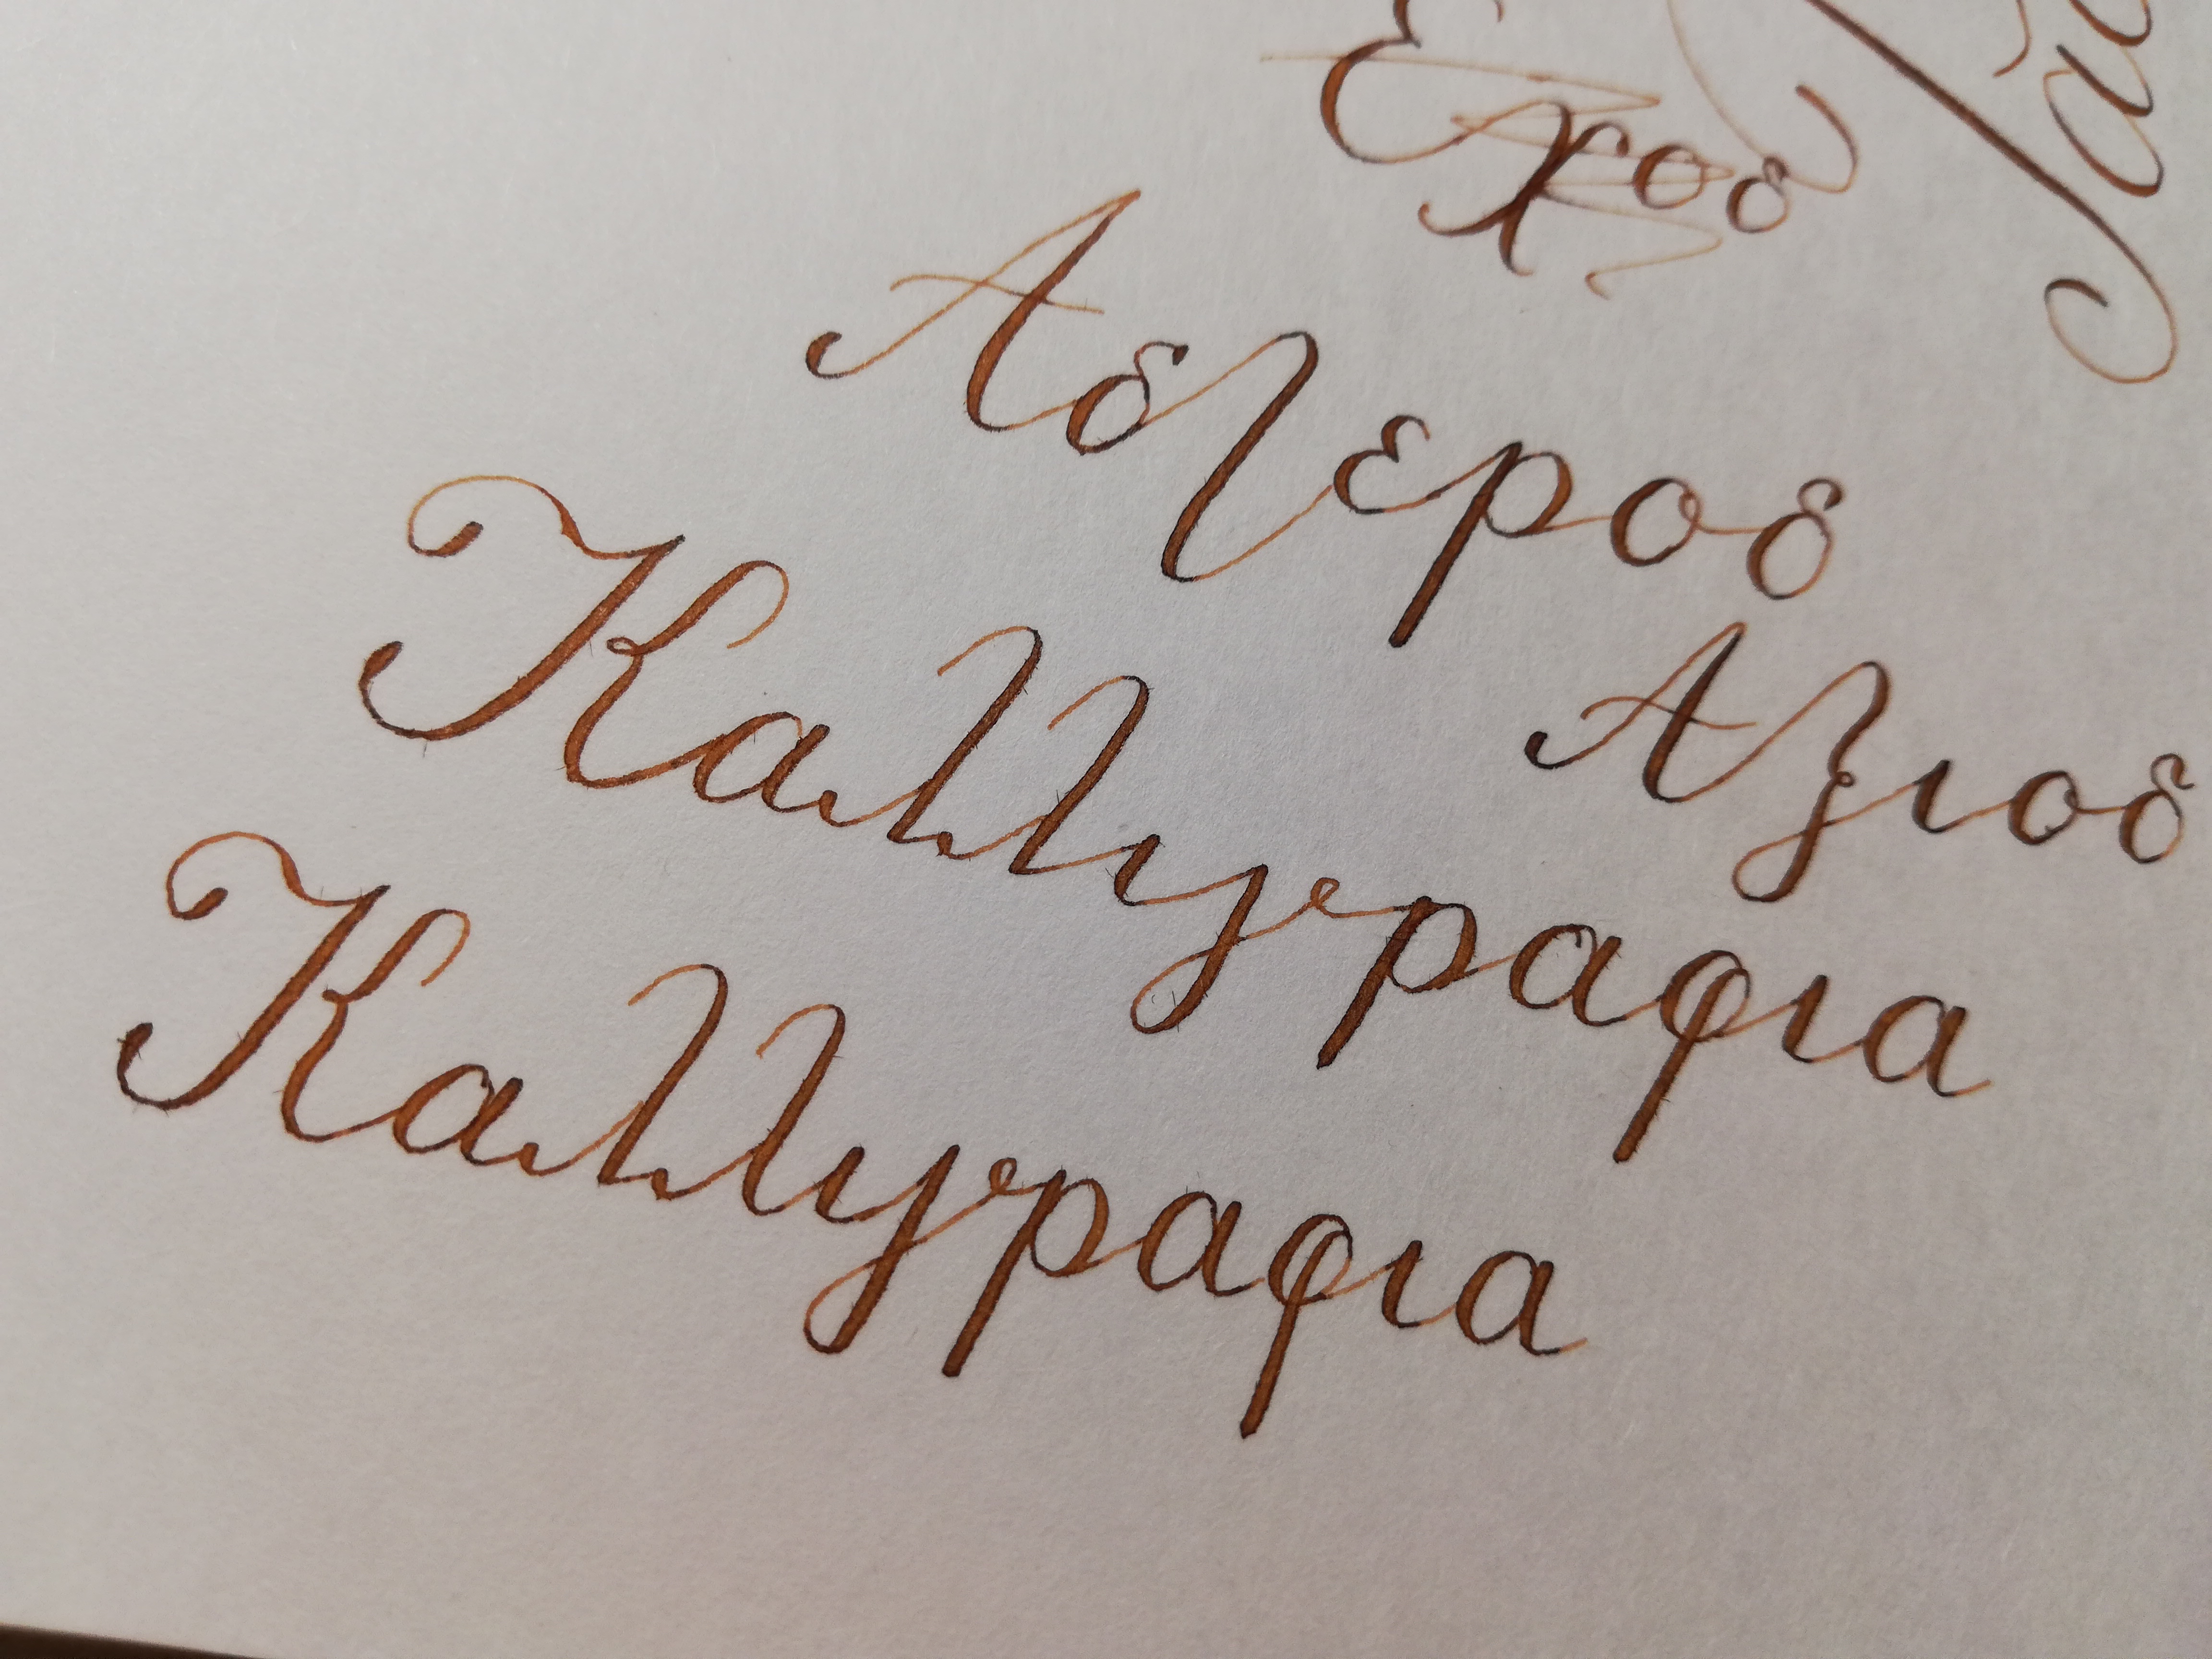 Εχος
Αστερος
Αξιος
Καλλιγραφια
Καλλιγραφια